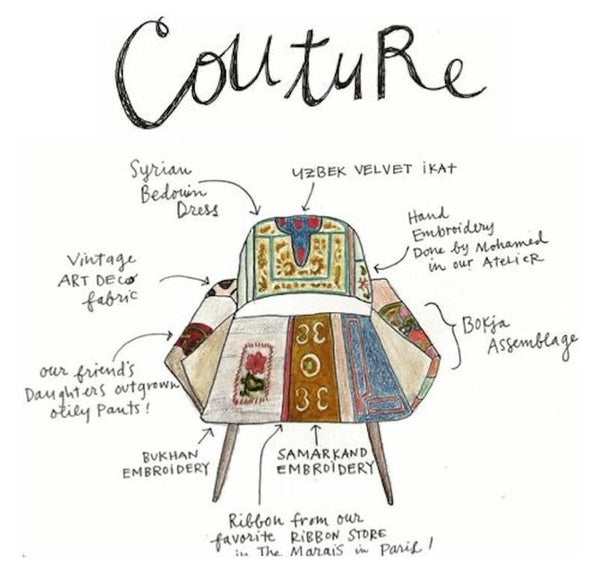 Couture
Syrian
Bedouin
Dress
UZBEK VELVET iKAT
Hand
Embroidery
Done by Mohamed
in our AteLieR
Vintage
ART DECO
fabric
BOKja
Assemblage
our friend's
Daughters outgrown
oilily Pants!
BUKHAN
EMBROiDERY
SAMARKAND
EMBROiDERY
Ribbon from our
favorite RiBBON STORE
in The Marais in Paris!